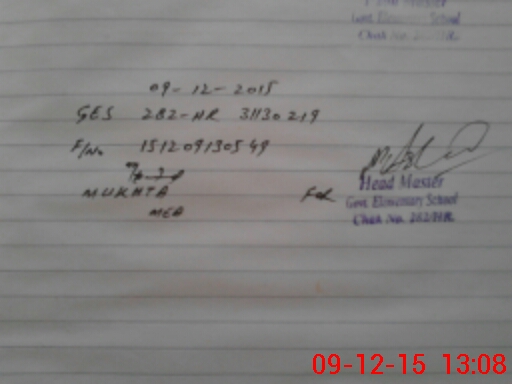 Head Master
Govt. Elementary School
Chak No. 282/HR.
09-12-2015
GES 282-HR 31130219
F/No 151209130549
MUKHTA
MEA
For
Head Master
Govt. Elementary School
Chak No. 282/HR.
09-12-15 13:08